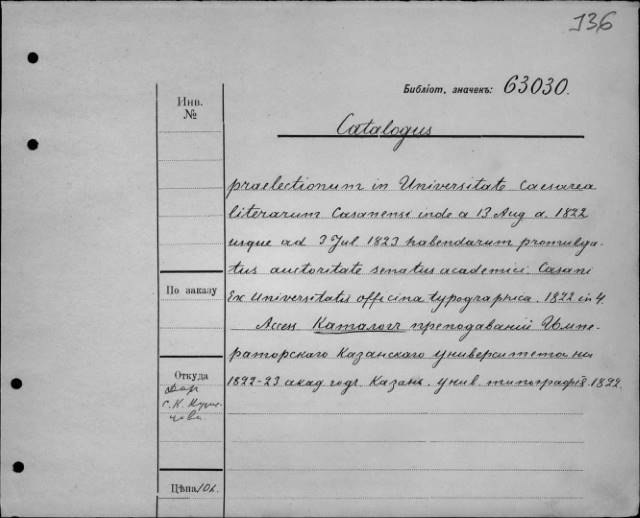 136
Библіот. значекъ: 63030.
Инв.
№
Catalogus
praelectionum in Universitate Caesarea
literarum Casanense inde a 13 Aug a. 1822
usque ad 3 Jul 1823 habendarum promulga-
tus auctoritate senatus academici. Casani
Ex Universitatis officina typographica. 1822 in 4.
По заказу
Access Каталогъ преподаваній Импе-
раторскаго Казанскаго университета на
1822-23 акад годъ. Казань. унив. типографія 1822.
Откуда
Дар
Цѣна 10 к.